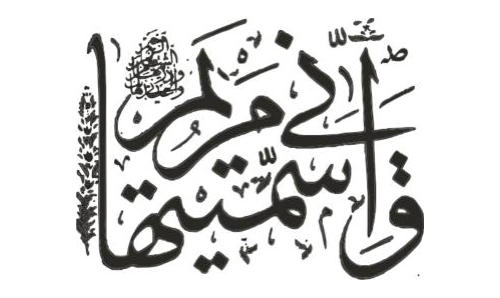 وَإِنِّي سَمَّيْتُهَا مَرْيَمَ